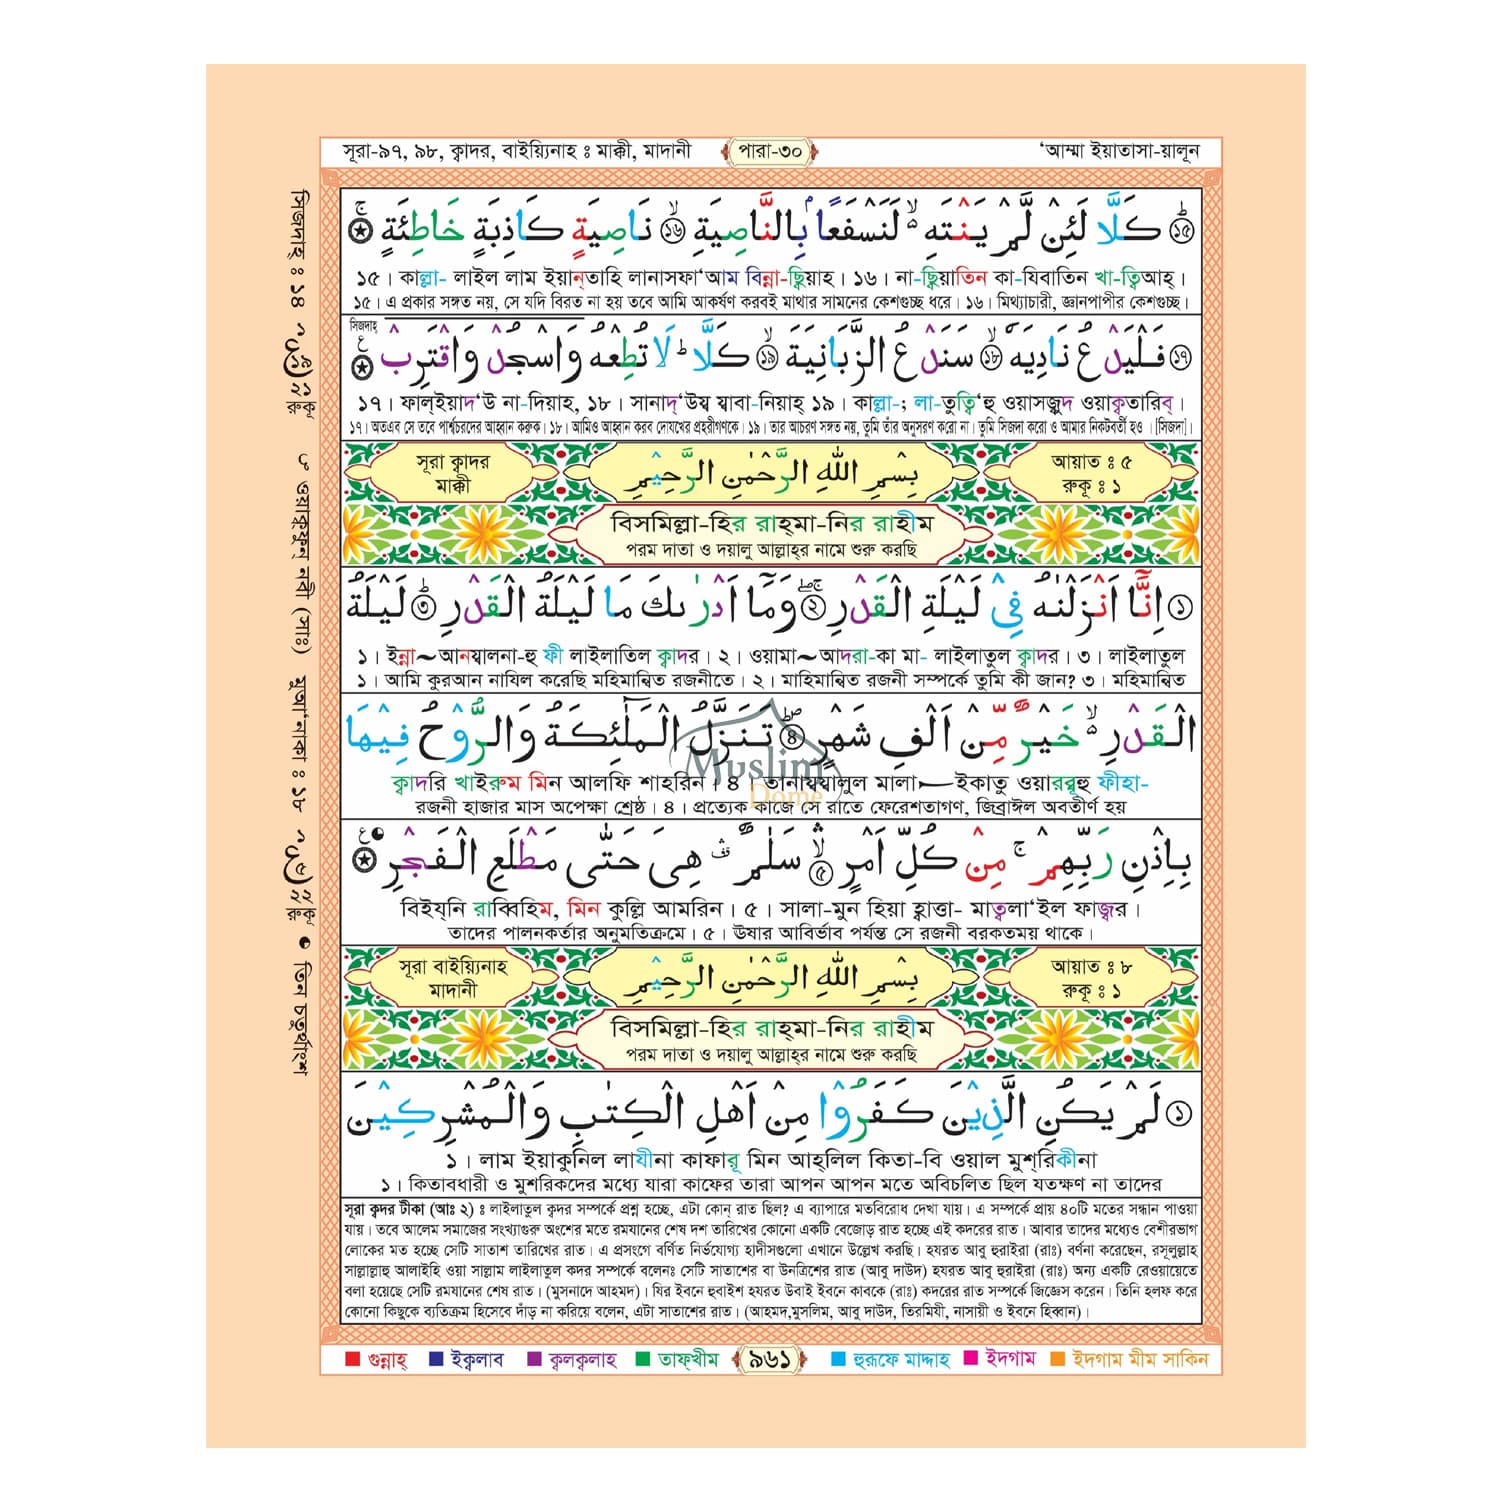 সূরা-৯৭, ৯৮, ক্বাদর, বাইয়্যিনাহ ঃ মাক্কী, মাদানী
পারা-৩০
‘আম্মা ইয়াতাসা-য়ালূন
۝১৫ كَلَّا لَئِنْ لَّمْ يَنْتَهِ ۙ لَنَسْفَعًۢا بِالنَّاصِيَةِ ۝১৬ ۙ نَاصِيَةٍ كَاذِبَةٍ خَاطِئَةٍ ۚ
১৫। কাল্লা- লাইল লাম ইয়ান্‌তাহি লানাসফা‘আম বিন্না-ছ্বিয়াহ। ১৬। না-ছ্বিয়াতিন কা-যিবাতিন খা-ত্বিআহ্‌।
১৫। এ প্রকার সঙ্গত নয়, সে যদি বিরত না হয় তবে আমি আকর্ষণ করবই মাথার সামনের কেশগুচ্ছ ধরে। ১৬। মিথ্যাচারী, জ্ঞানপাপীর কেশগুচ্ছ।
সিজদাহ্‌
۝১৭ فَلْيَدْعُ نَادِيَهٗ ۝১৮ ۙ سَنَدْعُ الزَّبَانِيَةَ ۝১৯ ۙ كَلَّا ؕ لَا تُطِعْهُ وَاسْجُدْ وَاقْتَرِبْ
১৭। ফাল্‌ইয়াদ‘উ না-দিয়াহ, ১৮। সানাদ্‌‘উয্ব য্বাবা-নিয়াহ্‌ ১৯। কাল্লা-; লা-তুত্বি‘হু ওয়াসজ্বুদ ওয়াক্বতারিব্‌।
১৭। অতএব সে তবে পার্শ্বচরদের আহ্বান করুক। ১৮। আমিও আহ্বান করব দোযখের প্রহরীগণকে। ১৯। তার আচরণ সঙ্গত নয়, তুমি তাঁর অনুসরণ করো না। তুমি সিজদা করো ও আমার নিকটবর্তী হও । [সিজদা]।
সূরা ক্বাদর
মাক্কী
بِسْمِ اللّٰهِ الرَّحْمٰنِ الرَّحِيْمِ
আয়াত ঃ ৫
রুকূ ঃ ১
বিসমিল্লা-হির রাহ্‌মা-নির রাহীম
পরম দাতা ও দয়ালু আল্লাহ্‌র নামে শুরু করছি
۝১ اِنَّاۤ اَنْزَلْنٰهُ فِيْ لَيْلَةِ الْقَدْرِ ۝২ وَمَاۤ اَدْرٰىكَ مَا لَيْلَةُ الْقَدْرِ ۝৩ ؕ لَيْلَةُ
১। ইন্না~আনয্বালনা-হু ফী লাইলাতিল ক্বাদর। ২। ওয়ামা~আদরা-কা মা- লাইলাতুল ক্বাদর। ৩। লাইলাতুল
১। আমি কুরআন নাযিল করেছি মহিমান্বিত রজনীতে। ২। মাহিমান্বিত রজনী সম্পর্কে তুমি কী জান? ৩। মহিমান্বিত
الْقَدْرِ ۙ خَيْرٌ مِّنْ اَلْفِ شَهْرٍ ۝৪ تَنَزَّلُ الْمَلٰٓئِكَةُ وَالرُّوْحُ فِيْهَا
Muslim
Dome
ক্বাদরি খাইরুম মিন আলফি শাহরিন। ৪। তানায্বয্বালুল মালা—ইকাতু ওয়াররূহু ফীহা-
রজনী হাজার মাস অপেক্ষা শ্রেষ্ঠ। ৪। প্রত্যেক কাজে সে রাতে ফেরেশতাগণ, জিব্রাঈল অবতীর্ণ হয়
بِاِذْنِ رَبِّهِمْ ۚ مِنْ كُلِّ اَمْرٍ ۝৫ سَلٰمٌ ۛ هِيَ حَتّٰى مَطْلَعِ الْفَجْرِ
বিইয্‌নি রাব্বিহিম, মিন কুল্লি আমরিন। ৫। সালা-মুন হিয়া হ্বাত্তা- মাত্বলা‘ইল ফাজ্বর।
তাদের পালনকর্তার অনুমতিক্রমে। ৫। ঊষার আবির্ভাব পর্যন্ত সে রজনী বরকতময় থাকে।
সূরা বাইয়্যিনাহ
মাদানী
بِسْمِ اللّٰهِ الرَّحْمٰنِ الرَّحِيْمِ
আয়াত ঃ ৮
রুকূ ঃ ১
বিসমিল্লা-হির রাহ্‌মা-নির রাহীম
পরম দাতা ও দয়ালু আল্লাহ্‌র নামে শুরু করছি
۝১ لَمْ يَكُنِ الَّذِيْنَ كَفَرُوْا مِنْ اَهْلِ الْكِتٰبِ وَالْمُشْرِكِيْنَ
১। লাম ইয়াকুনিল লাযীনা কাফারূ মিন আহ্‌লিল কিতা-বি ওয়াল মুশ্‌রিকীনা
১। কিতাবধারী ও মুশরিকদের মধ্যে যারা কাফের তারা আপন আপন মতে অবিচলিত ছিল যতক্ষণ না তাদের
সূরা ক্বদর টীকা (আঃ ২) ঃ লাইলাতুল ক্বদর সম্পর্কে প্রশ্ন হচ্ছে, এটা কোন্‌ রাত ছিল? এ ব্যাপারে মতবিরোধ দেখা যায়। এ সম্পর্কে প্রায় ৪০টি মতের সন্ধান পাওয়া
যায়। তবে আলেম সমাজের সংখ্যাগুরু অংশের মতে রমযানের শেষ দশ তারিখের কোনো একটি বেজোড় রাত হচ্ছে এই কদরের রাত। আবার তাদের মধ্যেও বেশীরভাগ
লোকের মত হচ্ছে সেটি সাতাশ তারিখের রাত। এ প্রসংগে বর্ণিত নির্ভযোগ্য হাদীসগুলো এখানে উল্লেখ করছি। হযরত আবু হুরাইরা (রাঃ) বর্ণনা করেছেন, রসূলুল্লাহ
সাল্লাল্লাহু আলাইহি ওয়া সাল্লাম লাইলাতুল কদর সম্পর্কে বলেনঃ সেটি সাতাশের বা উনত্রিশের রাত (আবু দাউদ) হযরত আবু হুরাইরা (রাঃ) অন্য একটি রেওয়ায়েতে
বলা হয়েছে সেটি রমযানের শেষ রাত। (মুসনাদে আহমদ)। যির ইবনে হুবাইশ হযরত উবাই ইবনে কাবকে (রাঃ) কদরের রাত সম্পর্কে জিজ্ঞেস করেন। তিনি হলফ করে
কোনো কিছুকে ব্যতিক্রম হিসেবে দাঁড় না করিয়ে বলেন, এটা সাতাশের রাত। (আহমদ,মুসলিম, আবু দাউদ, তিরমিযী, নাসায়ী ও ইবনে হিব্বান)।
গুন্নাহ্‌
ইক্বলাব
ক্বলক্বলাহ
তাফ্‌খীম
৯৬১
হুরূফে মাদ্দাহ
ইদগাম
ইদগাম মীম সাকিন
সিজদাহ্‌ ঃ ১৪
রুকূ‘
ওয়াক্বফুন্‌ নবী (সাঃ)
মুআ‘নাকা ঃ ১৮
রুকূ‘
তিন চতুর্থাংশ